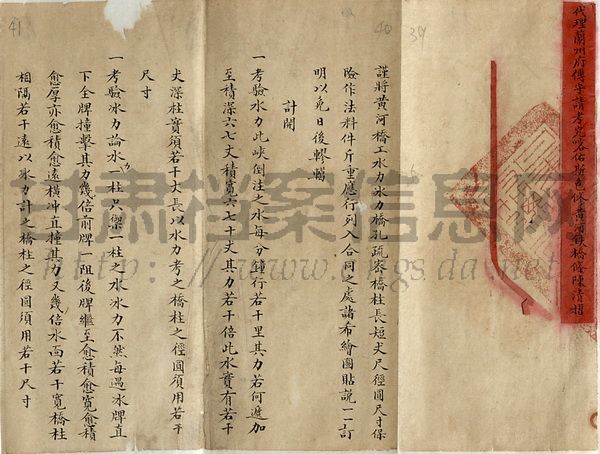 代理蘭州府傅守請考究喀佑斯包修黃河鐵橋條陳清摺
謹將黃河橋工水力冰力橋孔疏密橋柱長短丈尺徑圓尺寸保
險作法料件斤重應行列入合同之處請希繪圖貼說一一訂
明以免日後轇轕
計開
一考驗水力此峽倒注之水每分鐘行若干里其力若何遞加
至積深六七丈積寬六七十丈其力若干倍此水實有若干
丈深柱實須若干丈長以水力考之橋柱之徑圓須用若干
尺寸
一考驗冰力論水力柱只禦一柱之水冰力不然每遇冰牌直
下全牌撞擊其力幾倍前牌一阻後牌繼至愈積愈寬愈積
愈厚亦愈積愈遠橫冲直撞其力又幾倍水面若干寬橋柱
相隔若干遠以冰力計之橋柱之徑圓須用若干尺寸
甘肅档案信息网
39
40
41